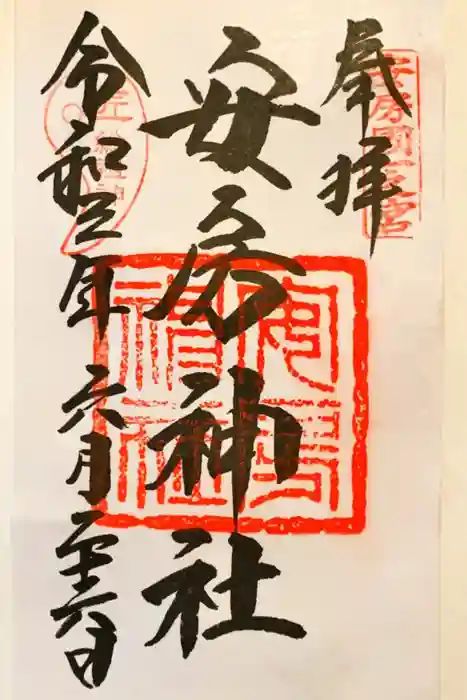 奉拝
安房國一之宮
安房神社
令和三年六月二十六日